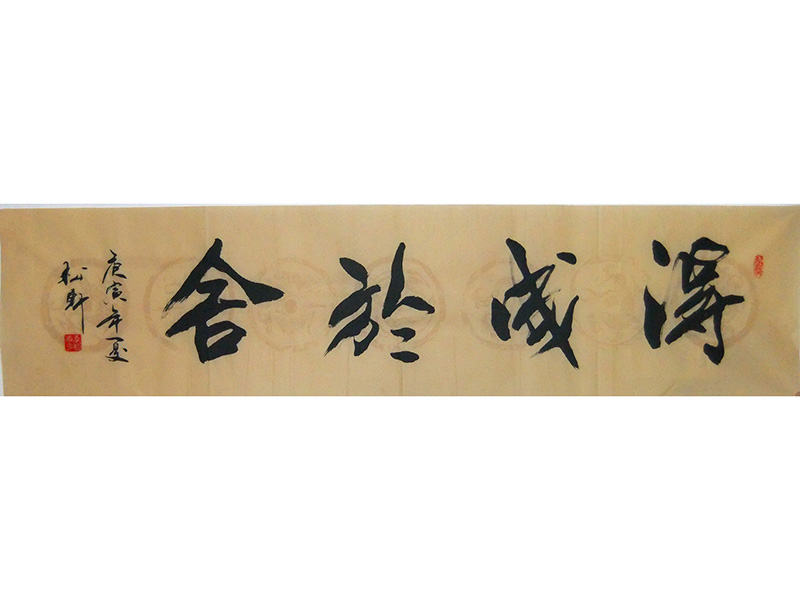 得成於舍
庚寅年夏